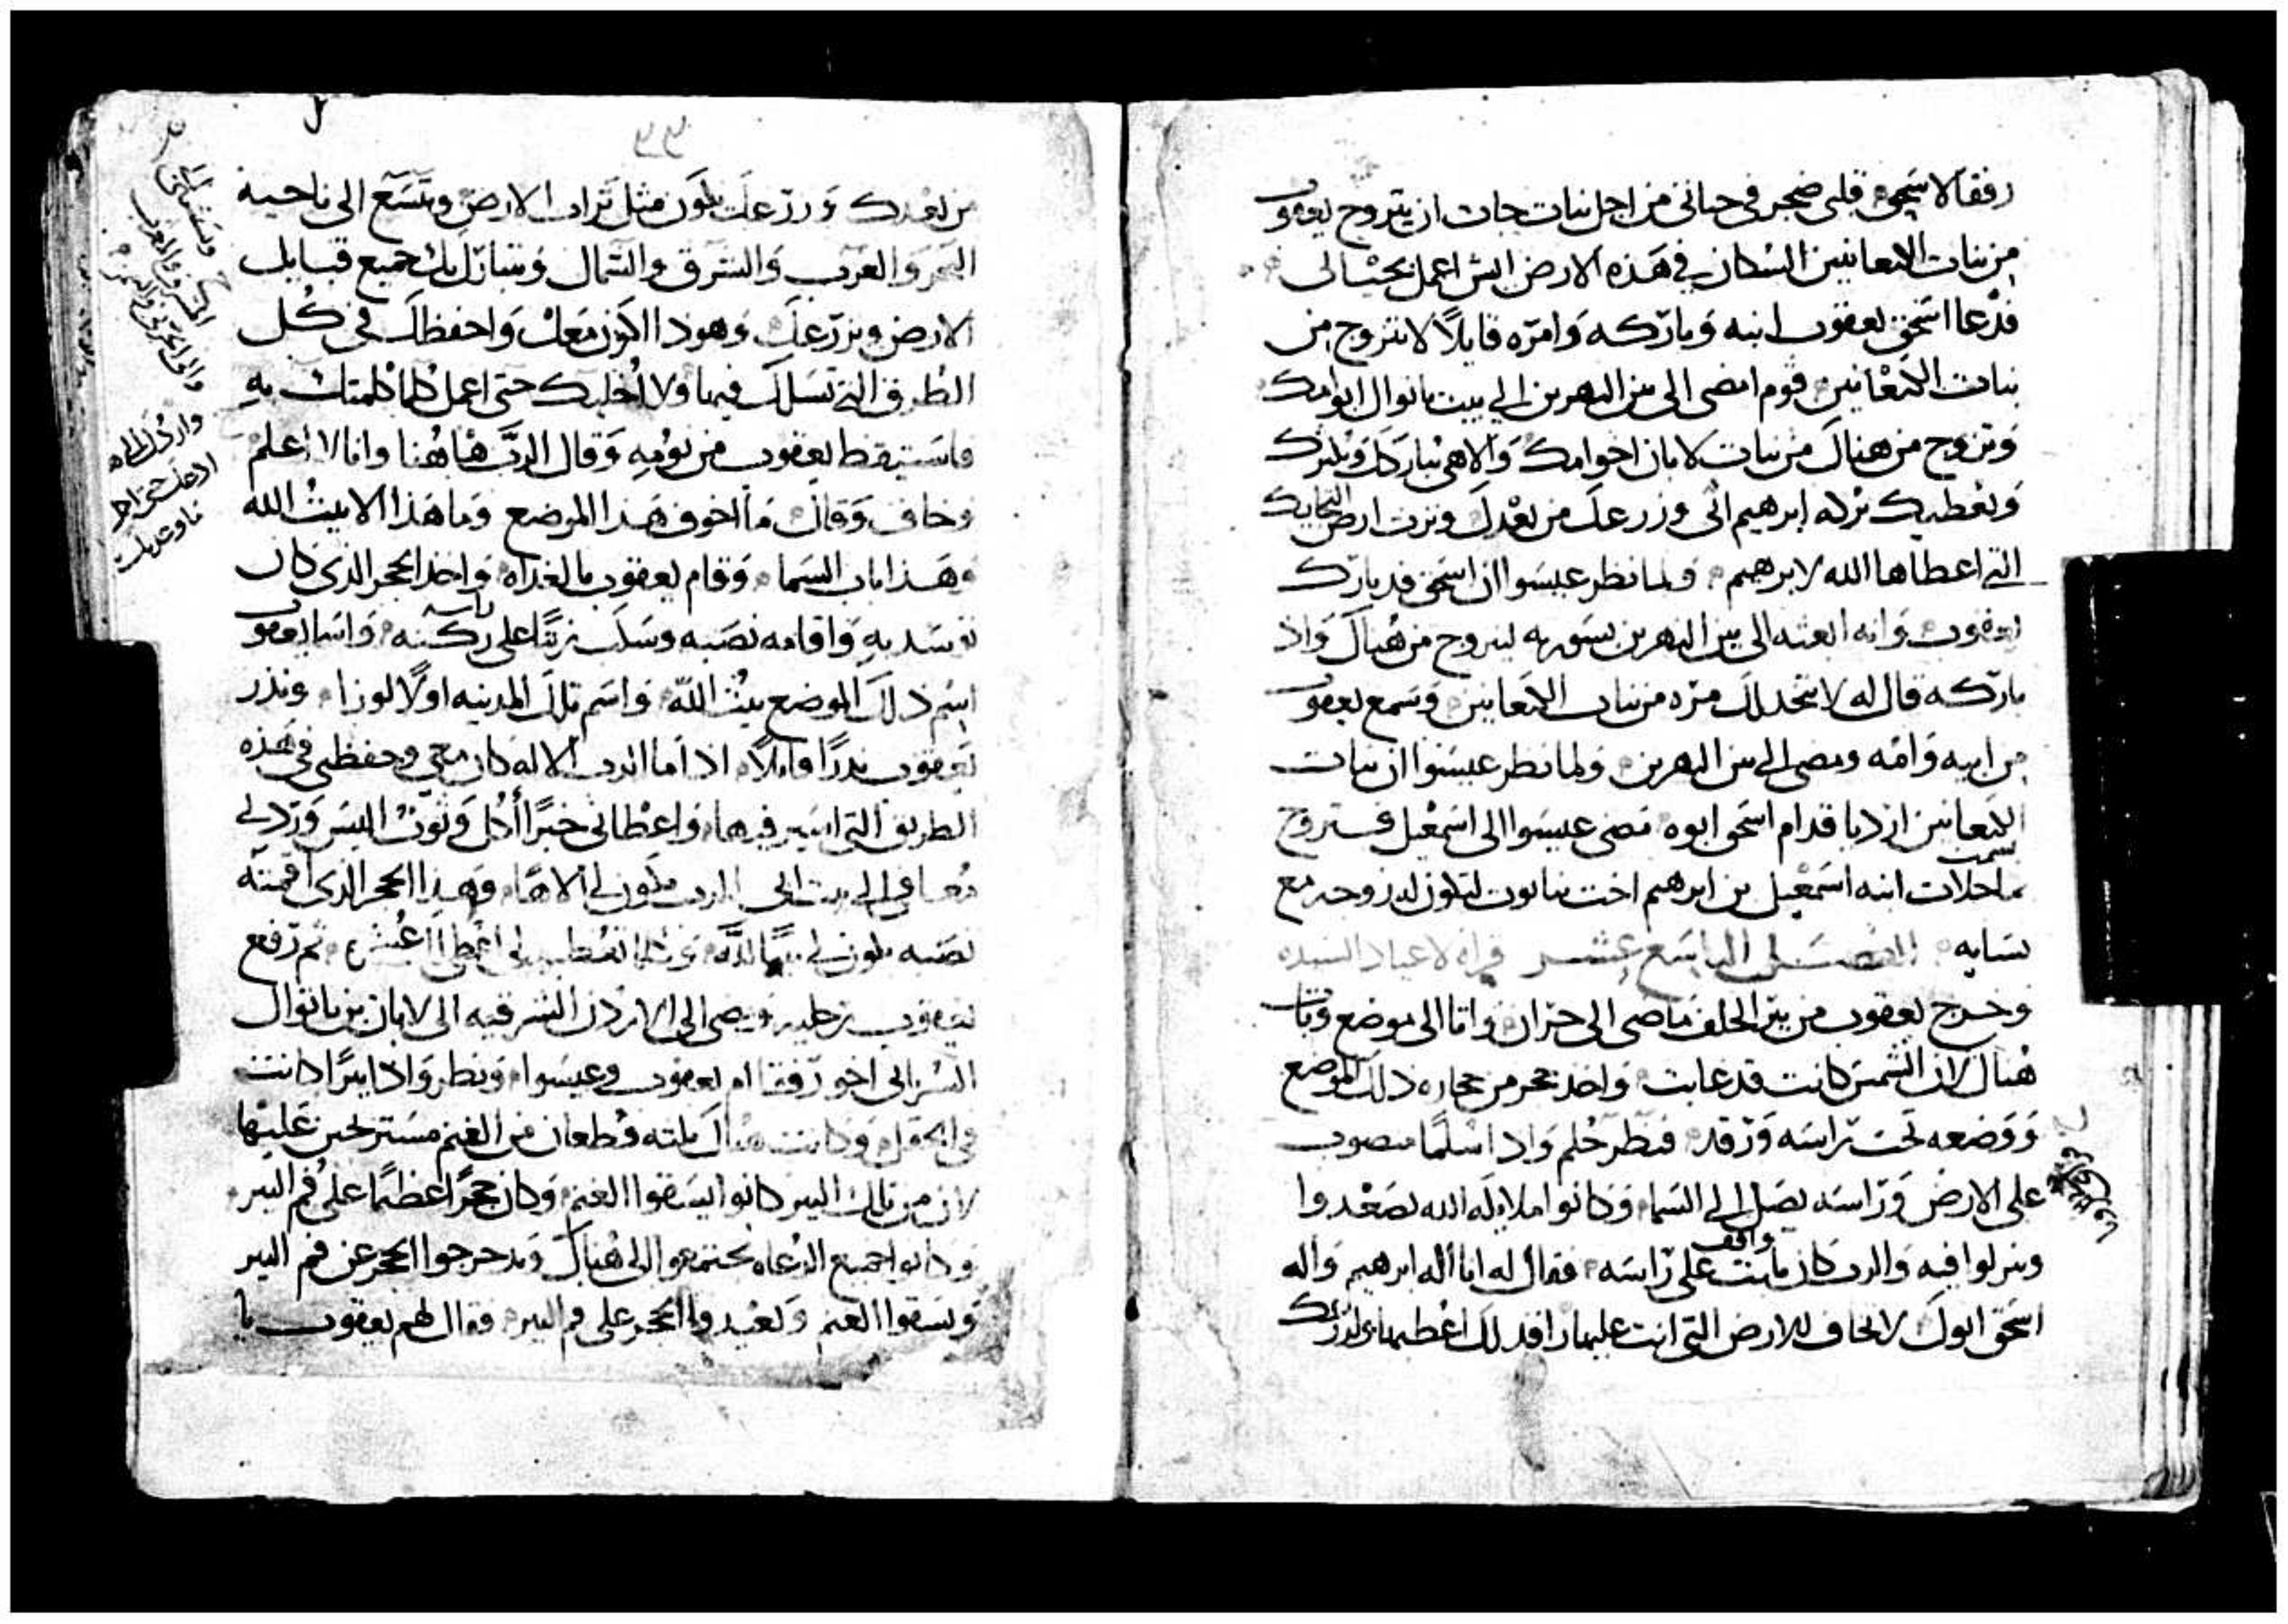 رفقا لاسحق قلبى ضجر فى حياتى من اجل بنات حاث ان يتزوج يعقوب
من بنات الكنعانيين السكان في هذه الارض ايش اعمل بحيٰاتى
فدعا اسحق يعقوب ابنه وباركه وامره قايلاً لا تتزوج من
بنات الكنعانيين قوم امضى الى بين النهرين الى بيت باتوال ابو امك
وتزوج من هناك من بنات لابان اخو امك والاهى يباركك ويكثرك
ويعطيك بركه ابرهيم ابى وزرعك من بعدك وترث ارض
التى اعطاها الله لابرهيم ولما نظر عيسوا ان اسحق قد بارك
يعقوب وانه ابعثه الى بين النهرين بسوريه ليتزوج من هناك واذ
باركه قال له لا تتخد لك مره من بنات الكنعانيين وسمع يعقوب
من ابيه وامه ومضى الى بين النهرين ولما نظر عيسوا ان بنات
الكنعانيين ارديا قدام اسحق ابوه مضى عيسوا الى اسمعيل فتزوج
بماحلات ابنه اسمعيل بن ابرهيم اخت نبايوت لتكون له زوجه مع
نسايه الفصل التاسع عشر قراه لاعياد السيده
وخرج يعقوب من بير الحلف ماضى الى حران واتا الى موضع وبات
هناك لان الشمس كانت قد غابت واخد حجر من حجاره ذلك الموضع
ووضعه تحت راسه ورقد فنظر حلم واذا سلمًا منصوب
على الارض وراسه يصل الى السما وكانوا ملايكه الله يصعدوا
وينزلوا فيه والرب كان ثابت واقف على راسه فقال له انا اله ابرهيم واله
اسحق ابوك لا تخاف للارض التى انت عليها راقد لك اعطيها ولزرعك
من بعدك وزرعك يكون مثل تراب الارض ويتسع الى ناحية
البحر والغرب والشرق والشمال ويتبارك بك جميع قبايل
الارض وبزرعك وهوذا اكون معك واحفظك فى كل
الطرق التى تسلك فيها ولا اخليك حتى اعمل كلما كلمتك به
فاستيقظ يعقوب من نومه وقال الرب هاهنا وانا لا اعلم
وخاف وقال ما اخوف هذا الموضع وما هذا الا بيت الله
وهذا باب السما وقام يعقوب بالغداه واخذ الحجر الدى كان
توسد به واقامه نصبه وسكب زيتًا على ركنه واسما يعقوب
اسم ذلك الموضع بيت الله واسم تلك المدينه اولاً لوزا ونذر
يعقوب ندرًا قايلاً اذا ما الرب الاله كان معى وحفظنى فى هذه
الطريق التى اسير فيها واعطانى خبزًا أكل وثوب البس وردنى
معافى الى بيت ابى الرب يكون لى الاهًا وهذا الحجر الدى اقمته
نصبه يكون لى بيتًا لله وكلما تعطيه لى اعطى اعشره ثم رفع
يعقوب رجليه ومضى الى الاردن الشرقيه الى لابان بن باتوال
السريانى اخو رفقا ام يعقوب وعيسوا ونظر واذا بيرًا كانت
فى الحقل وكانت هناك ثلثه قطعان من الغنم مستريحين عليها
لان من تلك البير كانوا يسقوا الغنم وكان حجرًا عظيمًا على فم البير
وكانوا جميع الرعاه يجتمعوا الى هناك ويدحرجوا الحجر عن فم البير
ويسقوا الغنم ويعيدوا الحجر على فم البير فقال لهم يعقوب يا